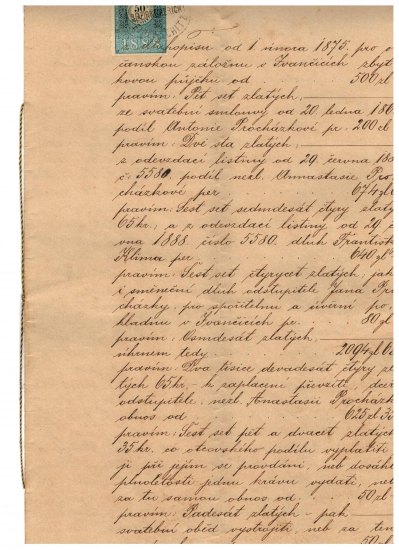 50
188
dlopisu od 1. února 1875. pro o
čanskou záložnu v Ivančicích zbyt
kovou půjčku od . . 500 zl
pravím: Pět set zlatých,
ze svatební smlouvy od 20. ledna 186
podíl Antonie Procházkové pr. 200 zl
pravím: Dvě sta zlatých,
z odevzdací listiny od 29. června 188
č: 5580. podíl nezl. Annastasie Pro
cházkové per . . 674 zl 6
pravím: Šest set sedmdesát čtyry zlat
65 kr., a z odevzdací listiny od 29. č
vna 1888. číslo 5580. dluh Františk
Klíma per . . 640 zl
pravím: Šest set čtyrycet zlatých, jak
i směneční dluh odstupitele Jana Pro
cházky, pro spořitelnu a úvěrní po
kladnu v Ivančicích pr. . 80 zl
pravím: Osmdesát zlatých.
úhrnem tedy . . 2094 zl 6
pravím: Dva tisíce devadesát čtyry zl
tých 65 kr. k zaplacení převzíti, dceř
odstupitele, nezl. Anastasii Procház
obnos od . . 625 zl 3
pravím: Šest set pět a dvacet zlatých
35 kr. co otcovského podílu vyplatiti
jí při jejím se provdání, neb dosáh
plnoletosti jednu krávu vydati, neb
za tu samou obnos od . . 50 zl
pravím: Padesát zlatých - pak
svatební oběd vystrojiti neb za ten
50 zl